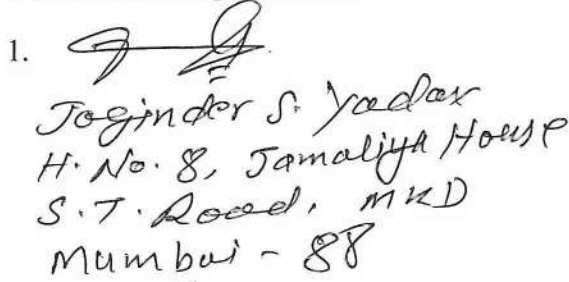 1.
Joginder S. Yadav
H. No. 8, Jamaliya House
S.T. Road, MKD
Mumbai - 88